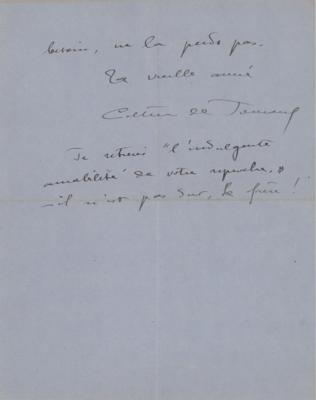 besoin, ne la perds pas.
Ta vieille amie
Colette de Jouvenel
Je retiens "l'indulgente
amabilité de votre reproche."
il n'est pas dur, le frère!